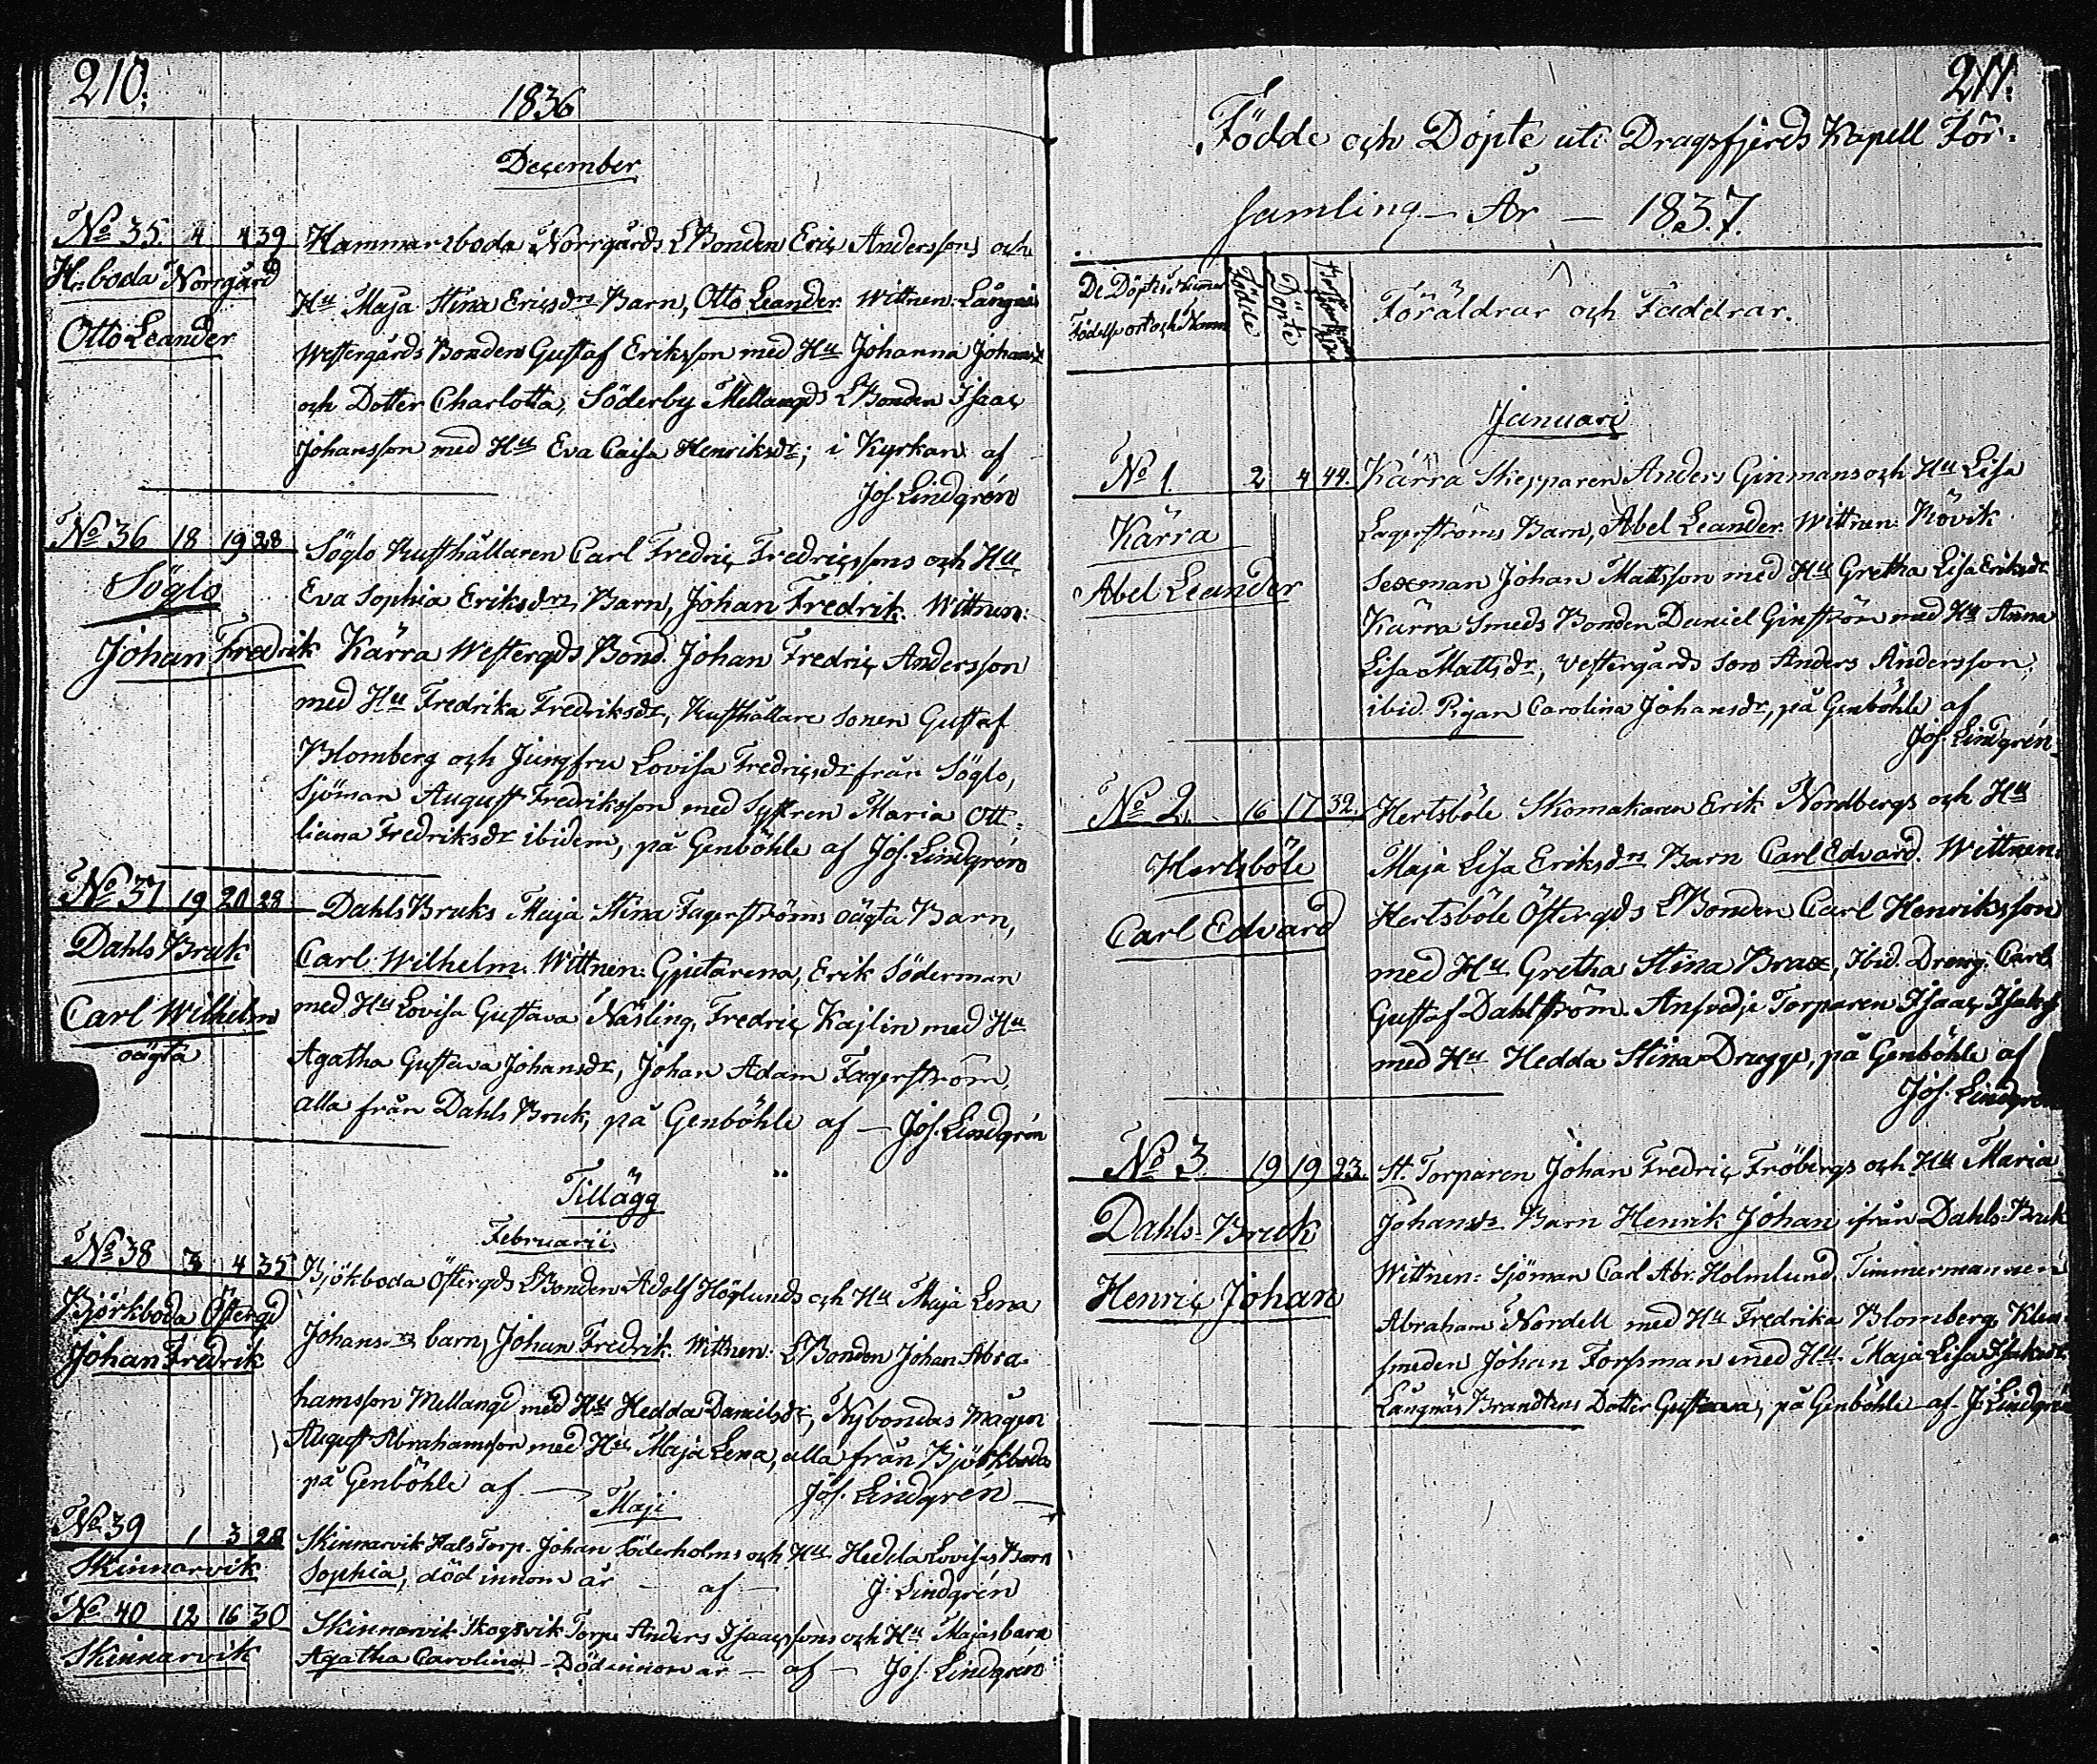 210.
1836
December
No 35. 4 4 39 Hammarsboda Norrgårds LBonden Eriç Anderssons och
H:boda Norrgård
Hu Maja Stina Ericsdrs Barn, Otto Leander. Wittnen: Långnäs
Otto Leander
Westergårds Bonden Gustaf Eriksson med Hu Johanna Johansdr
och Dotter Charlotta, Söderby Mellangds LBonden Isaaç
Johansson med Hu Eva Caisa Henriksdr; i Kyrkan af
Jos. Lindgrén
No 36 18 19 28 Söglo Rusthållaren Carl Fredriç Fredriçssons och Hu
Söglo
Eva Sophia Eriksdrs Barn, Johan Fredrik. Wittnen:
Johan Fredrik
Kärra Westergds Bond. Johan Fredriç Andersson
med Hu Fredrika Fredriksdr, Rusthållare sonen Gustaf
Blomberg och Jungfru Lovisa Fredriçsdr från Söglo,
Sjöman August Fredriksson med Systren Maria Ott-
liana Fredriksdr ibidem, på Genböhle af Jos. Lindgrén
No 37 19 20 28 Dahls Bruks Maja Stina Fagerströms oägta Barn,
Dahls Bruk
Carl Wilhelm. Wittnen: Gjutarena, Erik Söderman
Carl Wilhelm
med Hu Lovisa Gustava Näsling, Fredriç Kajlin med Hu
oägta
Agatha Gustava Johansdr, Johan Adam Fagerström,
alla från Dahls Bruk, på Genböhle af — Jos. Lindgrén
Tillägg
Februarii.
No 38 3 4 35 Bjökboda Östergds LBonden Adolf Höglunds och Hu Maja Lena
Björkboda Östergd
Johansdrs barn, Johan Fredrik. Wittnen: LBonden Johan Abra-
Johan Fredrik
hamsson Mellangd med Hu Hedda Danielsdr, Nybondas mågen
August Abrahamsson med Hu Maja Lena, alla från Björkboda
på Genböhle af — Jos. Lindgrén —
Maji
No 39 1 3 28 Skinnarvik Hals Torp. Johan Söderholms och Hu Hedda Lovisas Barn
Skinnarvik
Sophia, död innom år — af — J. Lindgrén
No 40 12 16 30 Skinnarvik Skogsvik Torp. Anders Isaaçssons och Hu Majas barn
Skinnarvik
Agatha Carolina — Död innom år — af — Jos. Lindgrén
211.
Födde och Döpte uti Dragsfjerds Kapell För-
samling — År — 1837.
De Döptes Numer
Födelse ort och Namn
Födde
Döpte
Föräldrar och Faddrar.
Januari
No 1. 2 4 44. Kärra Skepparen Anders Ginmans och Hu Lisa
Kärra
Lagerströms Barn, Abel Leander. Wittnen: Rövik
Abel Leander
Sexman Johan Mattsson med Hu Gretha Lisa Eriksdr
Kärra Smeds Bonden Daniel Ginström med Hu Anna
Lisa Mattsdr, Vestergårds son Anders Andersson,
ibid. Pigan Carolina Johansdr, på Genböhle af
Jos. Lindgrén
No 2. 16 17 32. Hertsböle Skomakaren Erik Nordbergs och Hu
Hertsböle
Maja Lisa Eriksdrs Barn Carl Edvard. Wittnen:
Carl Edvard
Hertsböle Östergds LBonden Carl Henriksson
med Hu Gretha Stina Brax, Ibid. Dreng. Carl
Gustaf Dahlström. Ansvedje Torparen Isaaç Isaks.
med Hu Hedda Stina Drugge, på Genböhle af
Jos. Lindgrén
No 3 19 19 23. St. Torparen Johan Fredriç Fröbergs och Hu Maria
Dahls-Bruk
Johansdrs Barn Henrik Johan ifrån Dahls-Bruk
Henriç Johan
Wittnen: Sjöman Carl Abr: Holmlund, Timmermannen
Abraham Nordell med Hu Fredrika Blomberg, Klen
smeden Johan Forssman med Hu Maja Lisa Isaksdr.
Långnäs Brandtens Dotter Gustava, på Genböhle af J. Lindgrén